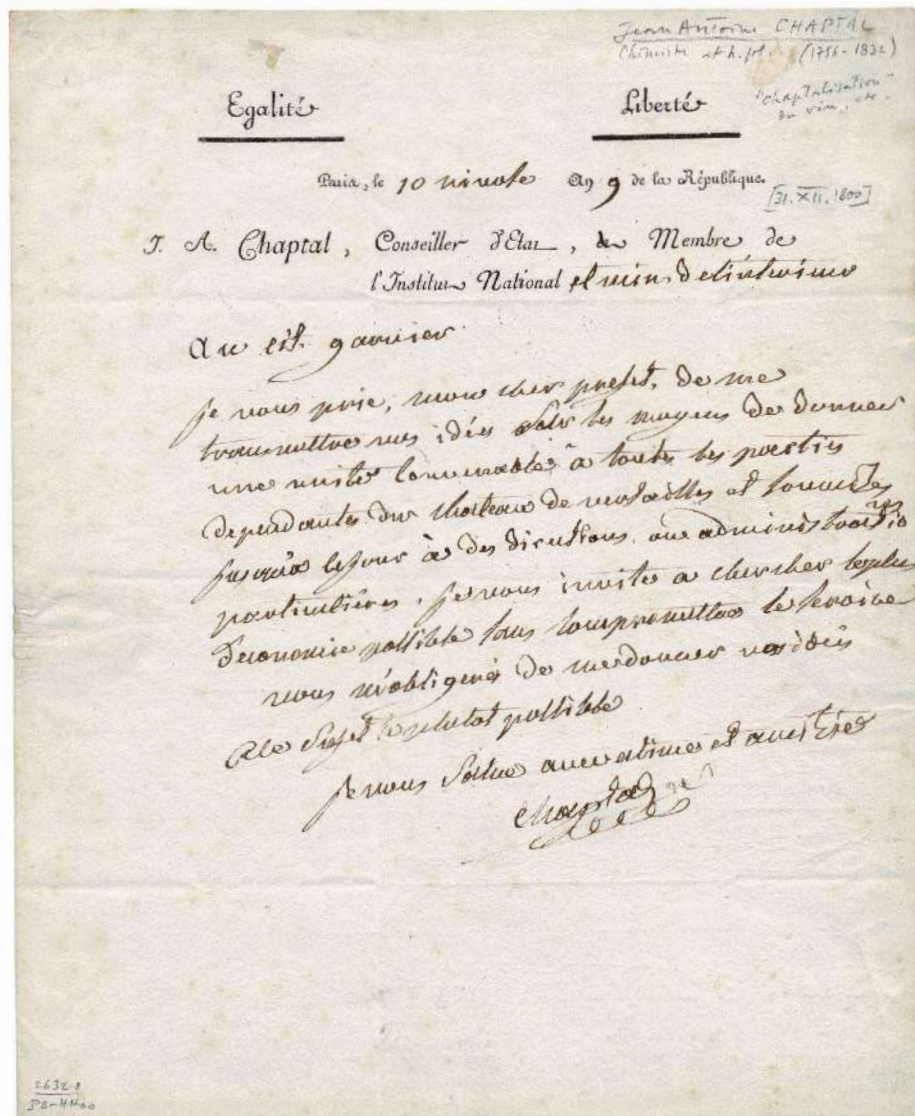 Jean Antoine CHAPTAL
Chimiste et h. pol. (1756-1832)
"chaptalisation"
du vin, etc.
Egalité Liberté
Paris, le 10 nivose An 9 de la République.
[31. XII. 1800]
J. A. Chaptal, Conseiller d'Etat, & Membre de
l'Institut National et min. de l'intérieur
Au cit. garnier
je vous prie, mon cher prefet, de me
transmettre vos idées sur les moyens de donner
une unité convenable à toutes les parties
dependantes du chateau de versailles et soumises
jusqu'à ce jour à des directions ou administrations
particulières. je vous invite a chercher le plus
d'economie possible sans compromettre le service
vous m'obligerés de me donner vos idées
a ce sujet le plutot possible
je vous salue avec estime et amitié
Chaptal
2632-8